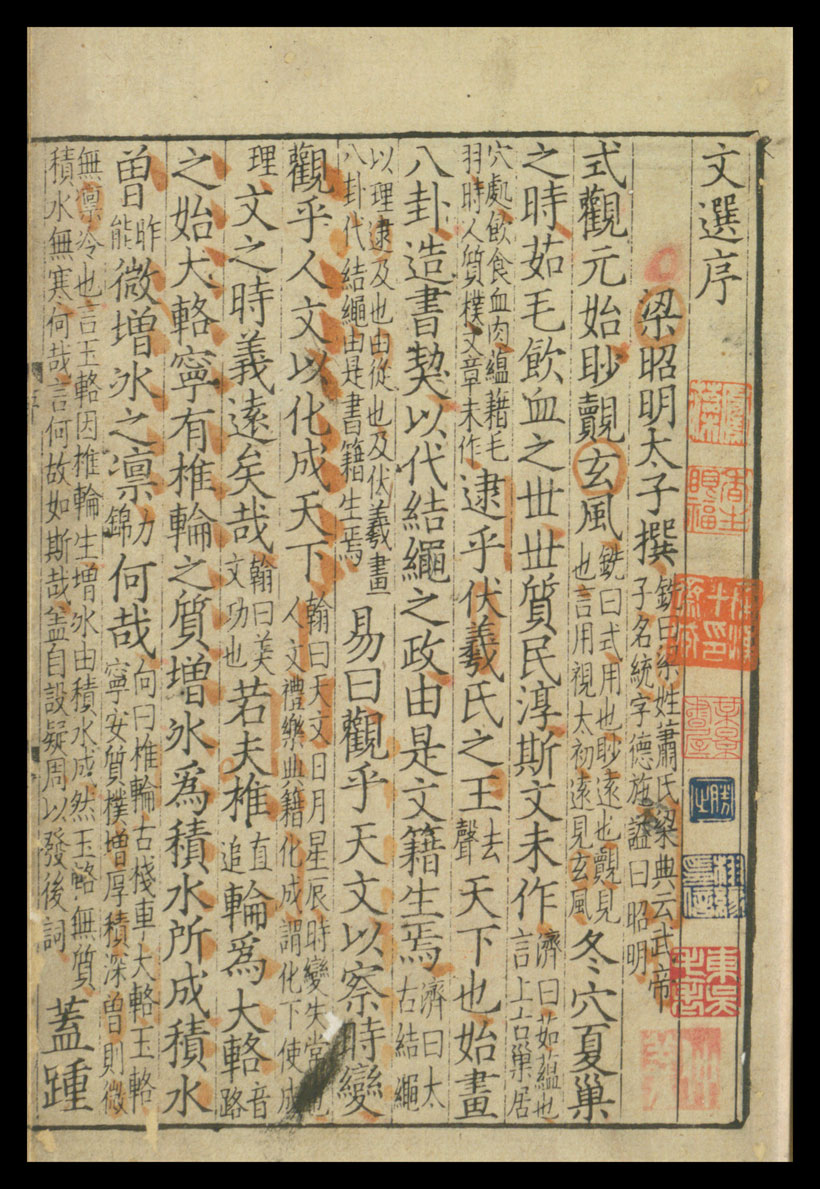 文選序
梁昭明太子撰銑曰梁姓蕭氏梁典云武帝子名統字德施謚曰昭明
式觀元始眇覿玄風銑曰式用也眇遠也覿見也言用視太初遠見玄風冬穴夏巢
之時茹毛飲血之丗丗質民淳斯文未作濟曰茹蘊也言上古巢居
穴處飲食血肉蘊藉毛羽時人質樸文章未作逮乎伏羲氏之王去聲天下也始畫
八卦造書契以代結繩之政由是文籍生焉濟曰太古結繩
以理逮及也由從也及伏羲畫八卦代結繩由是書籍生焉易曰觀乎天文以察時變
觀乎人文以化成天下翰曰天文日月星辰時變失常也人文禮樂典籍化成謂化下使成
理文之時義遠矣哉翰曰美文功也若夫椎直追輪爲大輅音路
之始大輅寧有椎輪之質增氷爲積水所成積水
曾昨能微增氷之凛力錦何哉向曰椎輪古棧車大輅玉輅寧安質樸增厚積深曾則微
無凛冷也言玉輅因椎輪生增氷由積水成然玉輅無質積水無寒何哉言何故如斯哉盖自設疑周以發後詞蓋踵